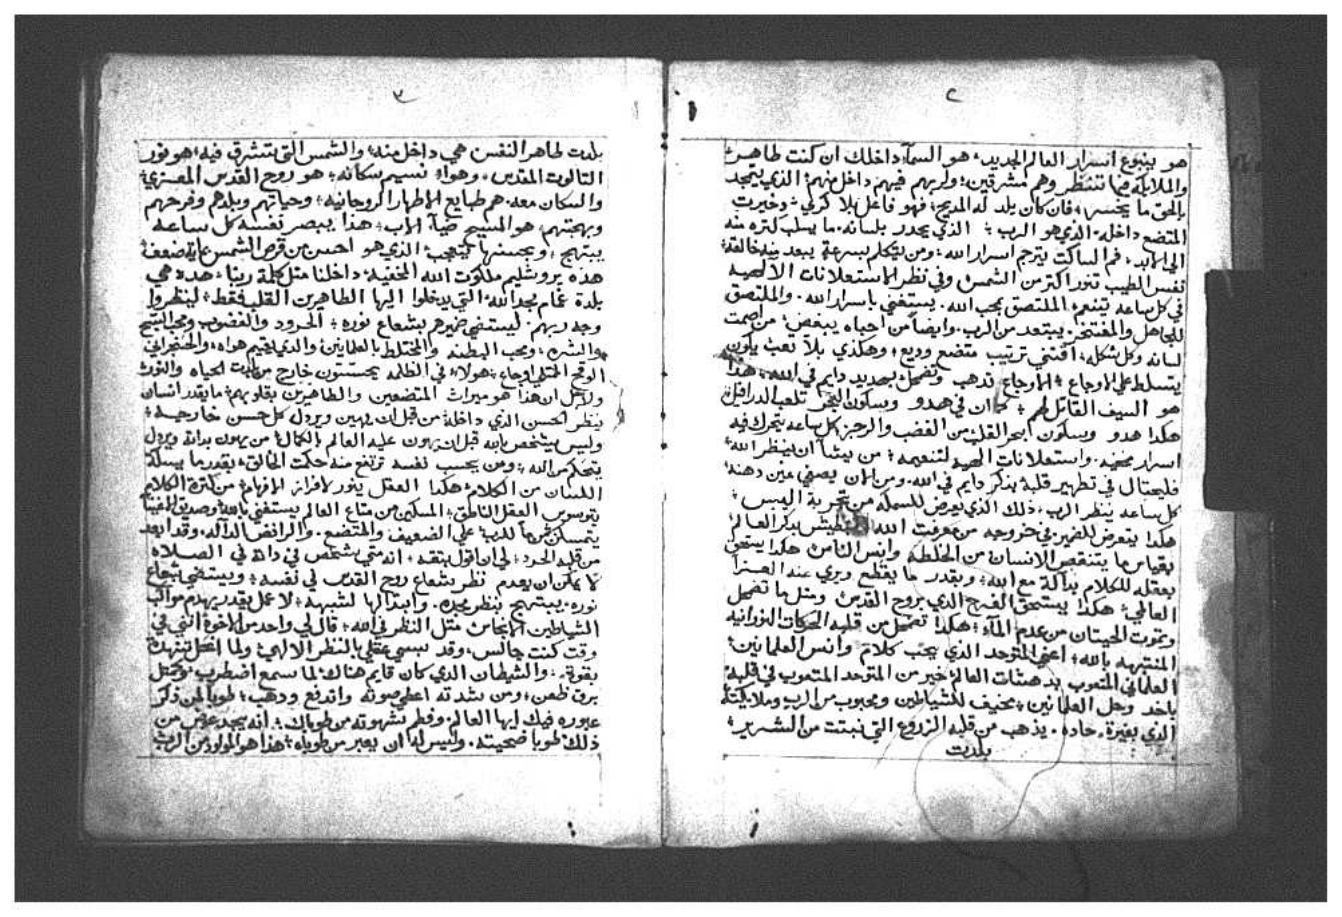 ٢
هو ينبوع اسرار العالم الجديد؛ هو السمآء داخلك ان كنت طاهر؛
والملايكه فيها تنتظر وهم مشرقين؛ وربهم فيهم داخل منهم؛ الذي يتمجد
بالحق ما يخسر؛ فان كان يلد له المديح؛ فهو فاعل بلا كري؛ وخيرت
المتضع داخله الذي هو الرب؛ الذي يحدر بلسانه ما يسلب كتره منه
الي الابد؛ فم الساكت يترجم اسرار الله؛ ومن يتكلم بسرعة يبعد منه خالقه؛
نفس الطيب تنور اكتر من الشمس وفي نظر الاستعلانات الالهيه
في كل ساعه تتنعم؛ الملتصق بمحب الله. يستغني باسرار الله. والملتصق
للجاهل والمفتخر. يبتعد من الرب. وايضا من احباه يبغض؛ من اصمت
لسانه وكل شكله، اقتني ترتيب متضع وديع؛ وهكذي بلا تعب يكون
يتسلط علي الاوجاع؛ الاوجاع تدهب وتضمحل بهديد دايم في الله؛ هدا
هو السيف القاتل لهم؛ كما ان في هدو وسكون البحر تلعب الدرافيل
هكدا هدو وسكون بحر القلب؛ من الغضب والرجز؛ كل ساعه تتحرك فيه
اسرار مخفيه. واستعلانات الهيه لتنعيمه؛ من يشآ ان ينظر الله؛
فليحتال في تطهير قلبه بدكر دايم في الله. ومن الان يصفي عين دهنه؛
كل ساعه ينظر الرب؛ ذلك الذي يعرض للسمكه من تجربة اليبس؛
هكدا يتعرض للضمير في خروجه من معرفت الله بدكر العالم
بقياس ما يتنقص الانسان من الخلطه وانس الناس هكدا يستحق
بعقله للكلام بدالة مع الله؛ وبقدر ما يقطع ويري عنه العزآ
العالمي؛ هكدا يستحق الفرح الدي بروح القدس ومثل ما تضمحل
وتموت الحيتان من عدم المآء؛ هكدا تضمحل من قلبه الحركات النورانيه
المنتبهه بالله؛ اعني المتوحد الذي يحب كلام وانس العلمانيين؛
العلماني المتعوب بدهشات العالم خير من المتوحد المتعوب في قلبه
ياخد وحل العلمانيين؛ مخيف للشياطين ومحبوب من الرب وملايكته
الدي بغيرة حاده. يذهب من قلبه الزروع التي نبتت من الشرير؛
بلدت
٣
بلدت طاهر النفس هي داخل منه؛ والشمس التي تشرق فيه؛ هو نور
التالوت المقدس. وهواء نسيم سكانه؛ هو روح القدس المعزي؛
والسكان معه. هم طبايع الاطهار الروحانيه؛ وحياتهم وبلدهم وفرحهم
وبهجتهم؛ هو المسيح ضيآ الاب؛ هدا يبصر نفسه كل ساعه
يبتهج؛ وبحسنها يتعجب؛ الذي هو احسن من قرص الشمس مايه ضعف؛
هذه يروشليم ملكوت الله الخفيه داخلنا مثل كلمة ربنا؛ هده هي
بلدة غمام مجد الله؛ التي يدخلوا اليها الطاهرين القلب فقط؛ لينظروا
وجه ربهم. ليستضي ضميرهم بشعاع نوره؛ الحرود والغضوب ومحب السبح
والشره؛ ومحب البطنه والمختلط بالعلمانيين؛ والدي يقيم هواه؛ والحنجراني
الوقح الممتلي اوجاع؛ هولاء في الظلمه يحستسون خارج من بلدت الحياه والنور؛
ولاجل ان هذا هو ميراث المتضعين والطاهرين بقلوبهم؛ ما يقدر انسان
ينظر الحسن الذي داخله؛ من قبل ان يهين ويردل كل حسن خارجيه؛
وليس يتشخص بالله قبل ان يهون عليه العالم بالكمال؛ من يهون بداته ويردل
يتحكم من الله؛ ومن يحسب نفسه ترتفع منه حكمت الخالق؛ بقدر ما يمسك
اللسان من الكلام؛ هكدا العقل ينور لافراز الافهام؛ من كترة الكلام
يتوسوس العقل الناطق؛ المسكين من متاع العالم يستغني بالله؛ وصديق الاغنيا
يتمسكن؛ علي الضعيف والمتضع. والرافض الدالة. وقد ابعد
من قلبه الحرد؛ لي ان اقول بتقه؛ انه متي يشخص في داته في الصلاه
لا يمكن ان يعدم نظر شعاع روح القدس في نفسه؛ ويستضي بشعاع
نوره. يبتهج بنظر مجده. وابتدالها لشبهه؛ لا عمل يقدر يهدم مواكب
الشياطين الانجاس متل النظر في الله؛ قال لي واحد من الاخوة انني في
وقت كنت جالس، وقد سبي عقلي النظر الالهي؛ ولما انحل تنهدت
بقوة. والشيطان الذي كان قايم هناك لما سمع اضطرب؛ ومتل
برق طعن؛ ومن شدته اعطي صوته واندفع ودهب؛ طوبا لمن ذكر
عبوره فيك ايها العالم وفطم شهوته من طوباك؛ انه يجد عوض من
ذلك طوبا صحيحيته. وليس له ان يعبر من طوباه؛ هذا هو المولود من الرب